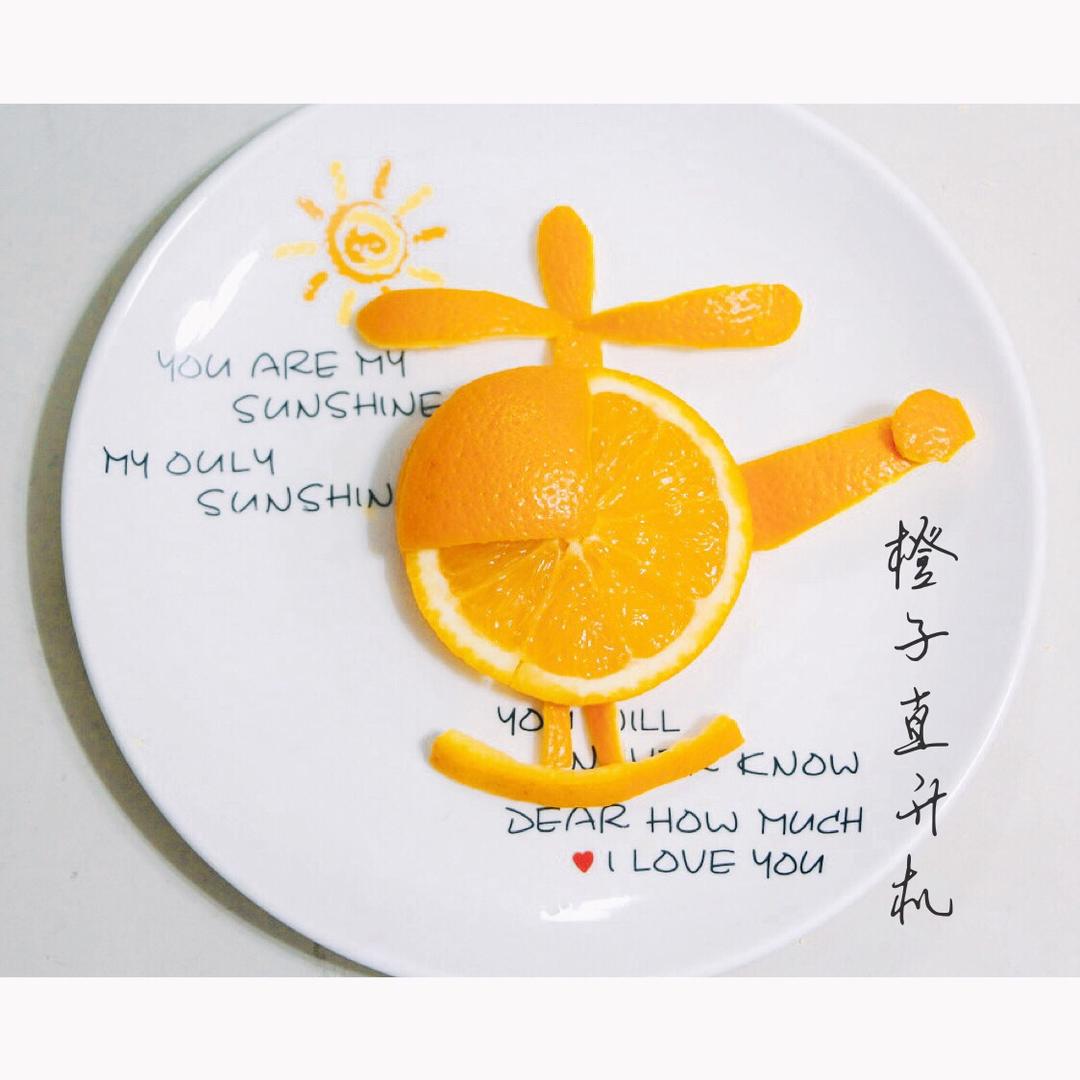 YOU ARE MY
SUNSHINE
MY OULY
SUNSHIN
YOU WILL
KNOW
DEAR HOW MUCH
I LOVE YOU
橙子直升机